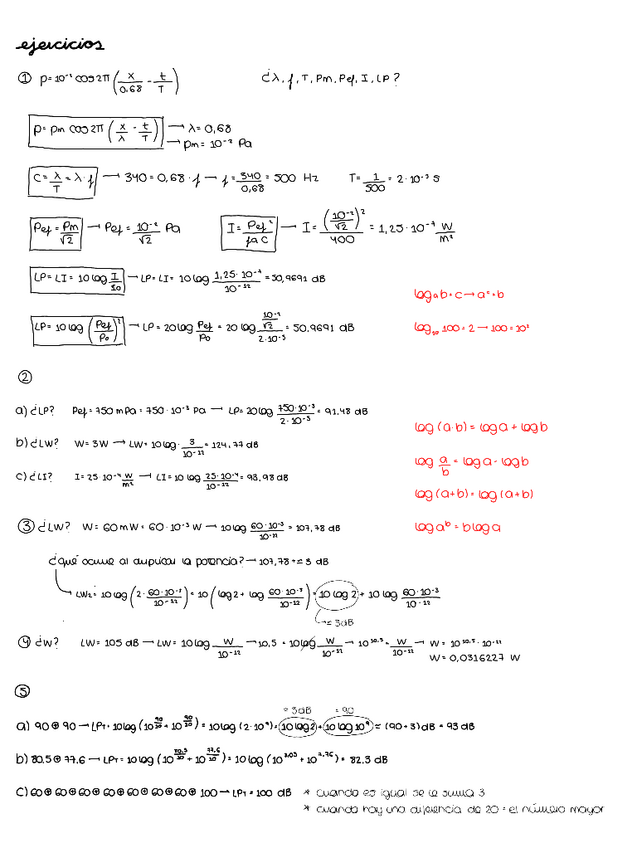 ejercicios
① p = 10⁻² cos 2π (x/0.68 - t/T) ¿λ, f, T, Pm, Pef, I, LP?
p = pm cos 2π (x/λ - t/T) → λ = 0,68
→ pm = 10⁻² Pa
C = λ/T = λ·f → 340 = 0,68 · f → f = 340/0,68 = 500 Hz T = 1/500 = 2·10⁻³ s
Pef = Pm/√2 → Pef = 10⁻²/√2 Pa I = Pef²/ρa C → I = (10⁻²/√2)²/400 = 1,25·10⁻⁷ W/m²
LP = LI = 10 log I/I0 → LP = LI = 10 log 1,25·10⁻⁷/10⁻¹² = 50,9691 dB
log a b = c → aᶜ = b
LP = 10 log (Pef/Po)² → LP = 20 log Pef/Po = 20 log (10⁻²/√2)/(2·10⁻⁵) = 50,9691 dB
log₁₀ 100 = 2 → 100 = 10²
②
a) ¿LP? Pef = 750 mPa = 750·10⁻³ Pa → LP = 20 log 750·10⁻³/2·10⁻⁵ = 91,48 dB
log (a·b) = log a + log b
b) ¿LW? W = 3W → LW = 10 log · 3/10⁻¹² = 124,77 dB
log a/b = log a - log b
c) ¿LI? I = 25·10⁻⁴ W/m² → LI = 10 log 25·10⁻⁴/10⁻¹² = 93,98 dB
log (a+b) = log (a+b)
③ ¿LW? W = 60 mW = 60·10⁻³ W → 10 log 60·10⁻³/10⁻¹² = 107,78 dB
log aᵇ = b log a
¿qué ocurre al duplicar la potencia? → 107,78 + 3 dB
LW₂ = 10 log (2 · 60·10⁻³/10⁻¹²) = 10 (log 2 + log 60·10⁻³/10⁻¹²) = 10 log 2 + 10 log 60·10⁻³/10⁻¹²
→ = 3dB
④ ¿W? LW = 105 dB → LW = 10 log W/10⁻¹² → 10,5 = 10 log W/10⁻¹² → 10¹⁰·⁵ = W/10⁻¹² → W = 10¹⁰·⁵ · 10⁻¹²
W = 0,0316227 W
⑤
= 3dB = 90
a) 90 ⊕ 90 → LPT = 10 log (10^90/10 + 10^90/10) = 10 log (2·10⁹) = 10 log 2 + 10 log 10⁹ = (90+3) dB = 93 dB
b) 80.5 ⊕ 77,6 → LPT = 10 log (10^80,5/10 + 10^77,6/10) = 10 log (10^8,05 + 10^7,76) = 82.3 dB
C) 60 ⊕ 60 ⊕ 60 ⊕ 60 ⊕ 60 ⊕ 60 ⊕ 60 ⊕ 100 → LPT = 100 dB * cuando es igual se le suma 3
* cuando hay una diferencia de 20 = el número mayor